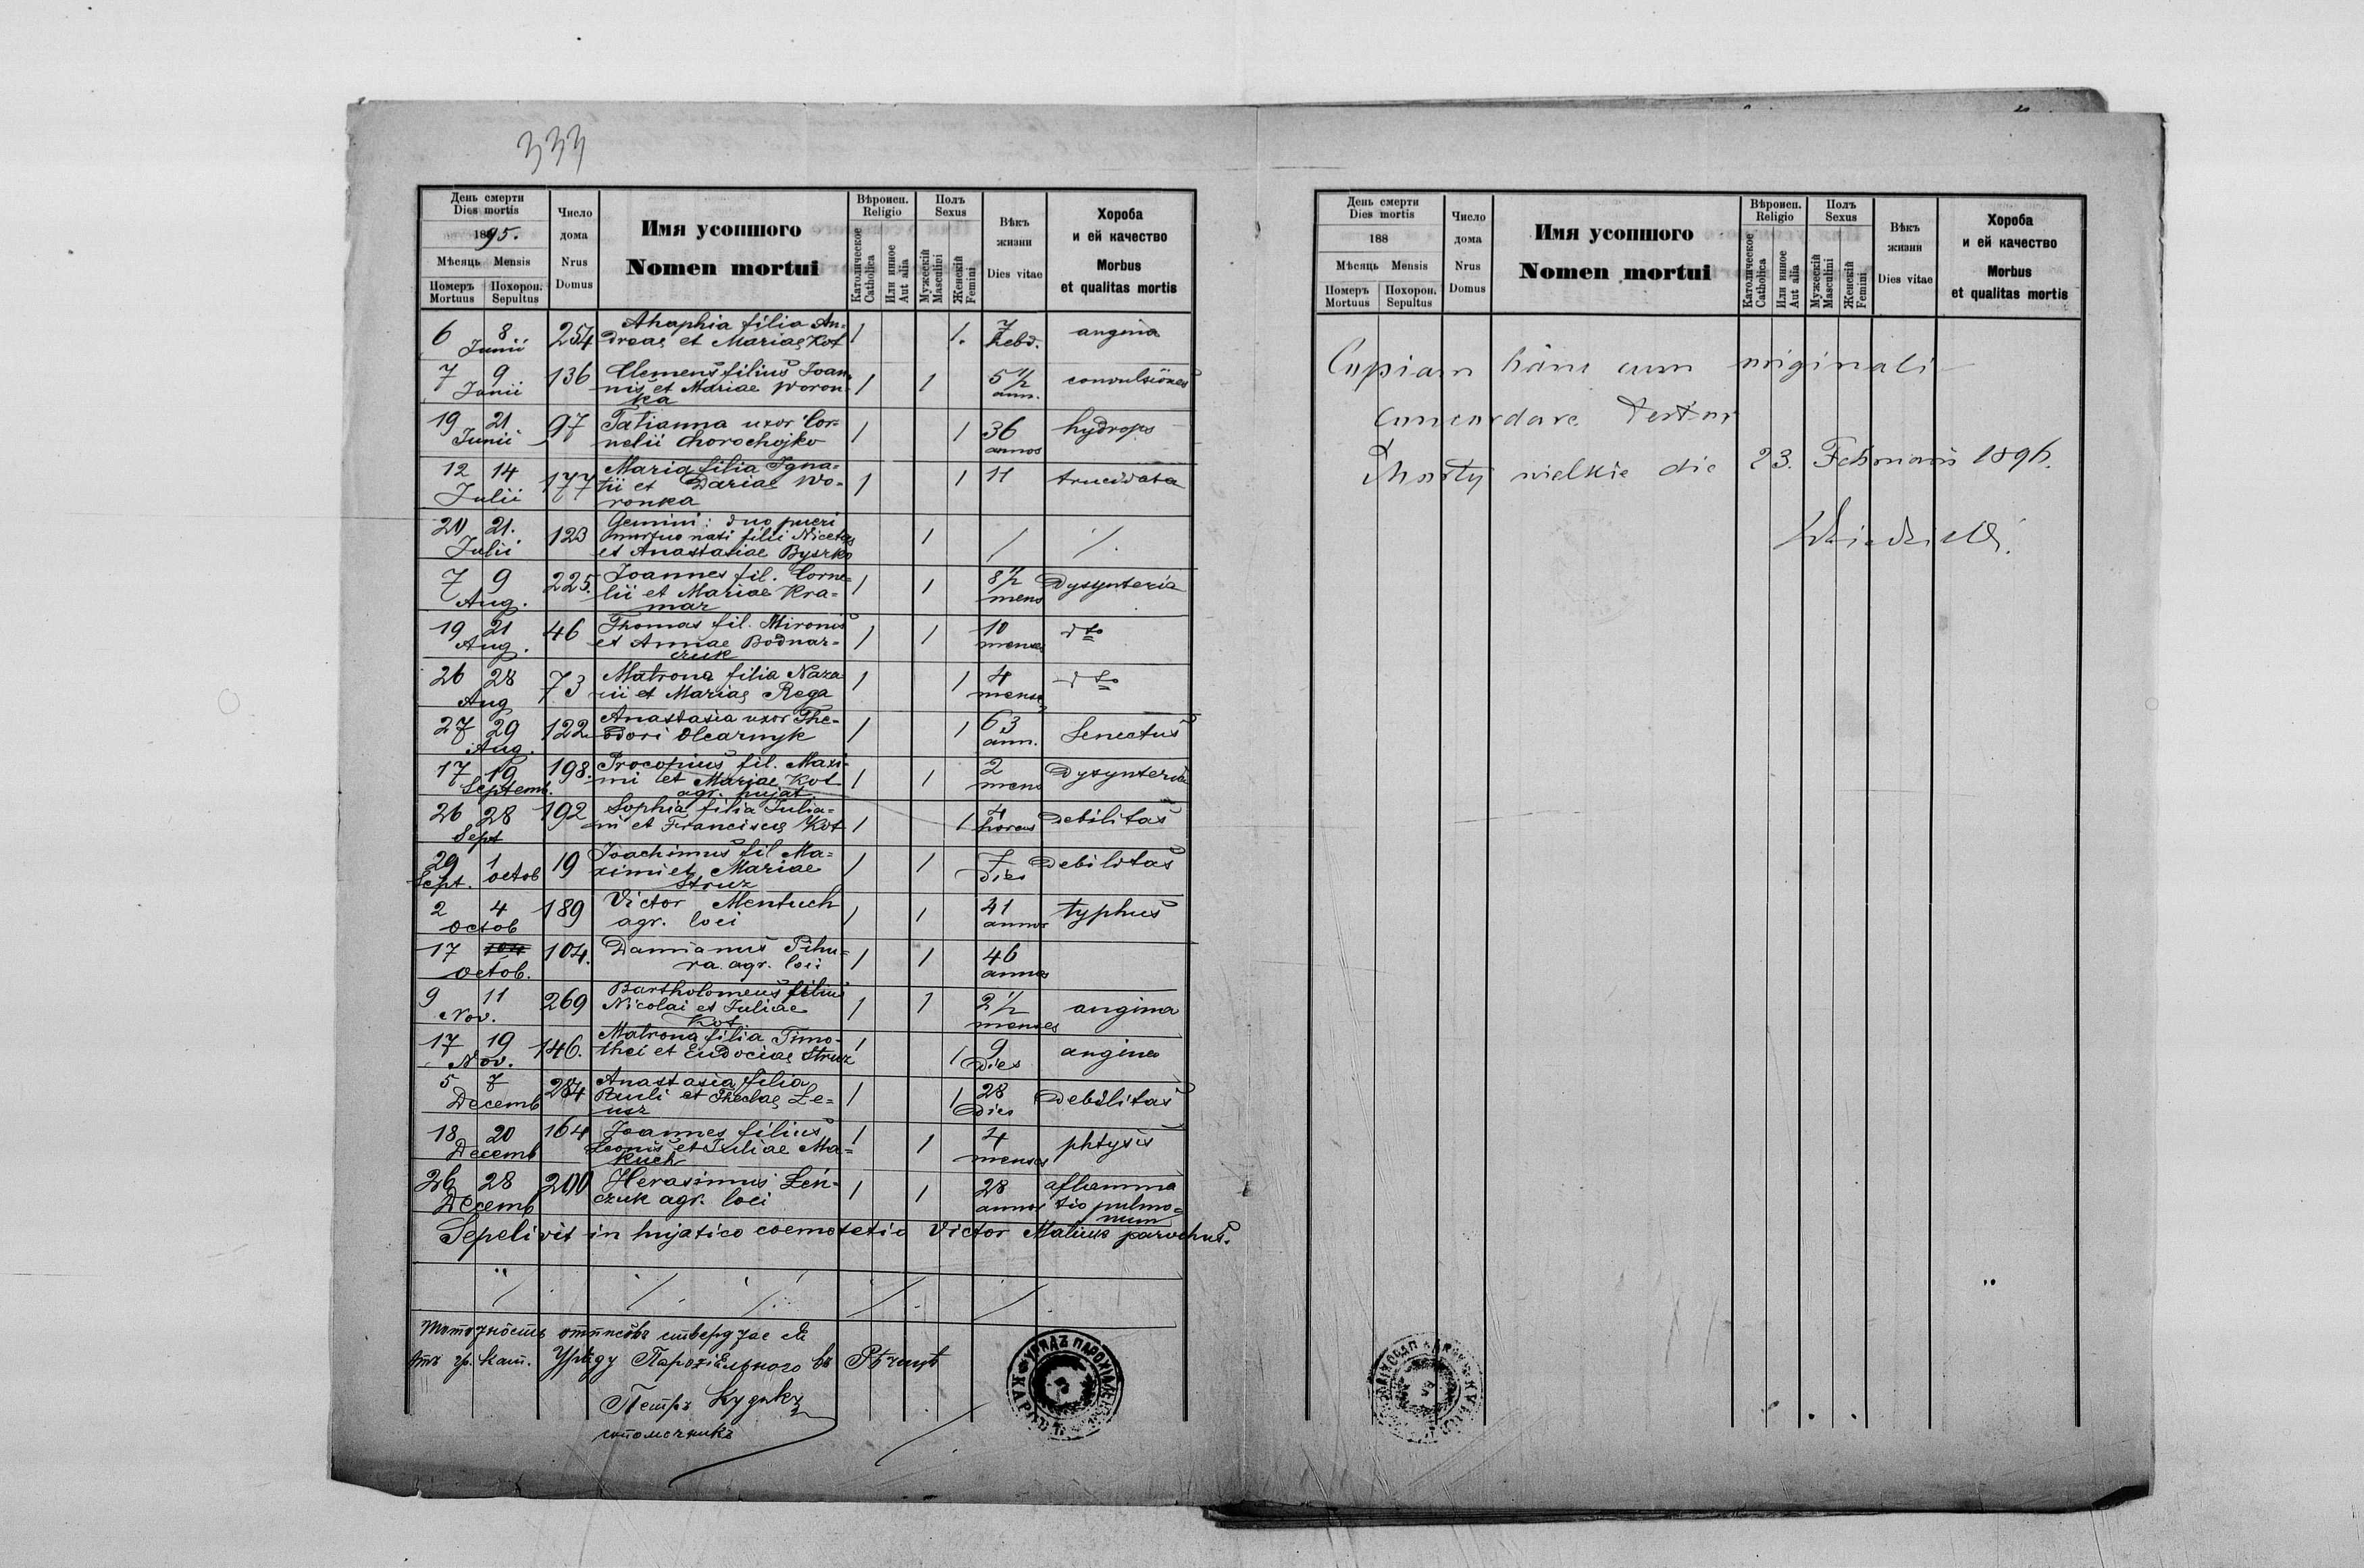 333
День смерти
Dies mortis
1895.
Мѣсяць Mensis
Померъ Похорон.
Mortuus Sepultus
Число
дома
Nrus
Domus
Имя усопшого
Nomen mortui
Вѣроисп.
Religio
Католическое
Catholica
Или инное
Aut alia
Полъ
Sexus
Мужескій
Masculini
Женскій
Femini
Вѣкъ
жизни
Dies vitae
Хороба
и ей качество
Morbus
et qualitas mortis
6 8 254 Ahaphia filia An= 1 1. 7 angina
Junii dreae et Mariae Kot hebd.
7 9 136 Clemens filius Joan= 1 1 5 1/2 convulsiones
Junii nis et Mariae Woron= ann.
ka
19 21 97 Tatianna uxor Cor= 1 1 36 hydrops
Junii nelii Chorochojko annos
12 14 177 Maria filia Igna= 1 1 11 trucidata
Julii tii et Dariae Wo=
ronka
20 21. 123 Gemini: duo pueri 1 / /.
Julii mortuo nati filii Nicetae
et Anastasiae Byszko
7 9 225. Joannes fil. Corne= 1 1 8 1/2 Dysynteria
Aug. lii et Mariae Kra= mens
mar
19 21 46 Thomas fil. Mironis 1 1 10 dto
Aug. et Annae Bodnar= menses
czuk
26 28 73 Matrona filia Naza 1 1 4 dto
Aug rii et Mariae Rega menses
27 29 122 Anastasia uxor The= 1 1 63 Senectus
Aug. odori Olearnyk ann.
17 19 198. Procopius fil. Maxi= 1 1 2 Dysynteria
Septemb. mi et Mariae Kot mens
agr. hujat.
26 28 192 Sophia filia Julia= 1 1 4 debilitas
Sept ni et Franciscae Kot horas
29 1 19 Joachimus fil Ma= 1 1 7 debilitas
Sept. octob ximi et Mariae dies
Struz
2 4 189 Victor Mentuch 1 1 41 typhus
octob agr. loci annos
17 104. Damianus Pihu= 1 1 46
octob. ra agr. loci annos
9 11 269 Bartholomeus filius 1 1 2 1/2 angina
Nov. Nicolai et Juliae menses
Kot
17 19 146. Matrona filia Timo= 1 1 9 angina
Nov. thei et Eudociae Struz dies
5 7 284 Anastasia filia 1 1 28 debilitas
Decemb Pauli et Theclae Le= dies
usz
18 20 164 Joannes filius 1 1 4 phtysis
Decemb Leonis et Juliae Ma= menses
kuch
26 28 200 Herasimus Łen= 1 1 28 aflamma
Decemb czuk agr. loci annos tio pulmo=
num
Sepelivit in hujatico coemetetio Victor Matiuk parochus.
отписôвъ стверджае ся
гр. кат. Уряду Парохіяльного въ
Петръ Кудыкъ
День смерти
Dies mortis
188
Мѣсяць Mensis
Померъ Похорон.
Mortuus Sepultus
Число
дома
Nrus
Domus
Имя усопшого
Nomen mortui
Вѣроисп.
Religio
Католическое
Catholica
Или инное
Aut alia
Полъ
Sexus
Мужескій
Masculini
Женскій
Femini
Вѣкъ
жизни
Dies vitae
Хороба
и ей качество
Morbus
et qualitas mortis
Copiam hanc cum originali
concordare testor
Mosty wielkie die 23. Februarii 1896.